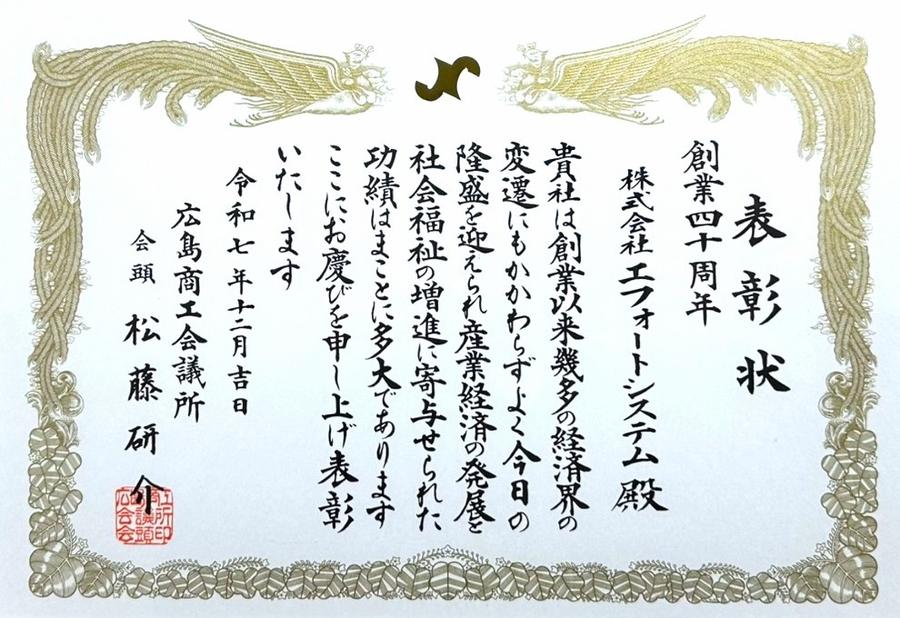 表彰状
創業四十周年
株式会社エフォートシステム殿
貴社は創業以来幾多の経済界の
変遷にもかかわらずよく今日の
隆盛を迎えられ産業経済の発展と
社会福祉の増進に寄与せられた
功績はまことに多大であります
ここにお慶びを申し上げ表彰
いたします
令和七年十二月吉日
広島商工会議所
会頭 松藤研介